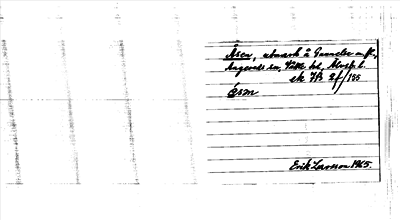 Åsen, utmark å Gunnebo m fl,
Angereds sn, Vättle hd, Älvsb. l.
ek 7B 2f/155
åsen
Erik Larsson 1965